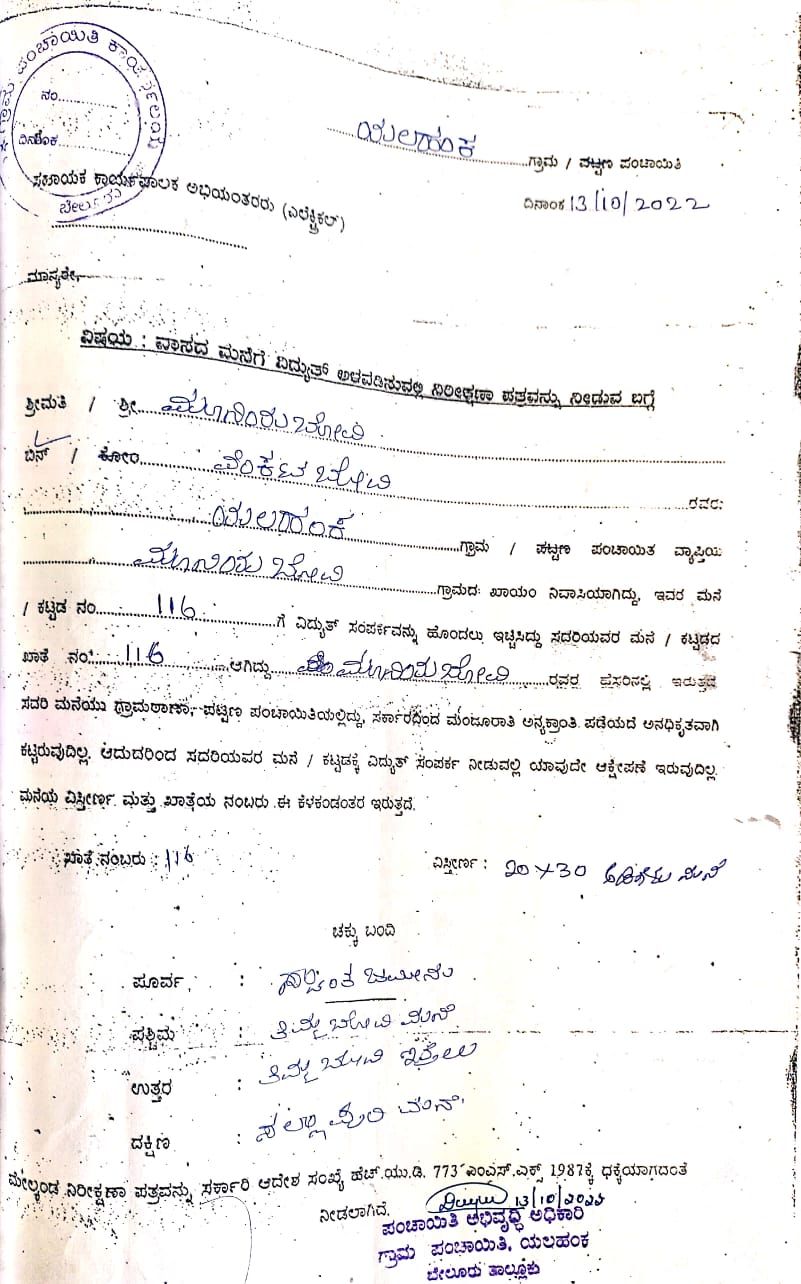 ಪಂಚಾಯಿತಿ ಕಾರ್ಯಾಲಯ
ನಂ..........
ದಿನಾಂಕ..........
ಬೇಲೂರು
ಯಲಹಂಕ ಗ್ರಾಮ / ಪಟ್ಟಣ ಪಂಚಾಯಿತಿ
ಸಹಾಯಕ ಕಾರ್ಯಪಾಲಕ ಅಭಿಯಂತರರು (ಎಲೆಕ್ಟ್ರಿಕಲ್)
ದಿನಾಂಕ 13/10/2022
ಮಾನ್ಯರೇ,
ವಿಷಯ : ವಾಸದ ಮನೆಗೆ ವಿದ್ಯುತ್ ಅಳವಡಿಸುವಲ್ಲಿ ನಿರೀಕ್ಷಣಾ ಪತ್ರವನ್ನು ನೀಡುವ ಬಗ್ಗೆ
ಶ್ರೀಮತಿ / ಶ್ರೀ ಬೋವಿ
ಬಿನ್ / ಕೋಂ ವೆಂಕಟ ಬೋವಿ ರವರು
ಯಲಹಂಕ ಗ್ರಾಮ / ಪಟ್ಟಣ ಪಂಚಾಯಿತಿ ವ್ಯಾಪ್ತಿಯ
ಬೋವಿ ಗ್ರಾಮದ ಖಾಯಂ ನಿವಾಸಿಯಾಗಿದ್ದು, ಇವರ ಮನೆ
/ ಕಟ್ಟಡ ನಂ. 116 ಗೆ ವಿದ್ಯುತ್ ಸಂಪರ್ಕವನ್ನು ಹೊಂದಲು ಇಚ್ಚಿಸಿದ್ದು ಸದರಿಯವರ ಮನೆ / ಕಟ್ಟಡದ
ಖಾತೆ ನಂ. 116 ಆಗಿದ್ದು ಬೋವಿ ರವರ ಹೆಸರಿನಲ್ಲಿ ಇರುತ್ತದೆ
ಸದರಿ ಮನೆಯು ಗ್ರಾಮಠಾಣಾ, ಪಟ್ಟಣ ಪಂಚಾಯಿತಿಯಲ್ಲಿದ್ದು, ಸರ್ಕಾರದಿಂದ ಮಂಜೂರಾತಿ ಅನ್ಯಕ್ರಾಂತಿ ಪಡೆಯದೆ ಅನಧಿಕೃತವಾಗಿ
ಕಟ್ಟಿರುವುದಿಲ್ಲ. ಆದುದರಿಂದ ಸದರಿಯವರ ಮನೆ / ಕಟ್ಟಡಕ್ಕೆ ವಿದ್ಯುತ್ ಸಂಪರ್ಕ ನೀಡುವಲ್ಲಿ ಯಾವುದೇ ಆಕ್ಷೇಪಣೆ ಇರುವುದಿಲ್ಲ
ಮನೆಯ ವಿಸ್ತೀರ್ಣ ಮತ್ತು ಖಾತೆಯ ನಂಬರು ಈ ಕೆಳಕಂಡಂತರ ಇರುತ್ತದೆ.
ಖಾತೆ ನಂಬರು : 116 ವಿಸ್ತೀರ್ಣ : 20 x 30 ಅಡಿಗಳು ಮನೆ
ಚಕ್ಕು ಬಂದಿ
ಪೂರ್ವ :
ಪಶ್ಚಿಮ : ತಿಮ್ಮ ಬೋವಿ ಮನೆ
ಉತ್ತರ : ತಿಮ್ಮ ಬೋವಿ
ದಕ್ಷಿಣ :
ಮೇಲ್ಕಂಡ ನಿರೀಕ್ಷಣಾ ಪತ್ರವನ್ನು ಸರ್ಕಾರಿ ಆದೇಶ ಸಂಖ್ಯೆ ಹೆಚ್.ಯು.ಡಿ. 773 ಎಂಎಸ್.ಎಕ್ಸ್ 1987ಕ್ಕೆ ಧಕ್ಕೆಯಾಗದಂತೆ
ನೀಡಲಾಗಿದೆ.
13/10/2022
ಪಂಚಾಯಿತಿ ಅಭಿವೃದ್ಧಿ ಅಧಿಕಾರಿ
ಗ್ರಾಮ ಪಂಚಾಯಿತಿ, ಯಲಹಂಕ
ಬೇಲೂರು ತಾಲ್ಲೂಕು